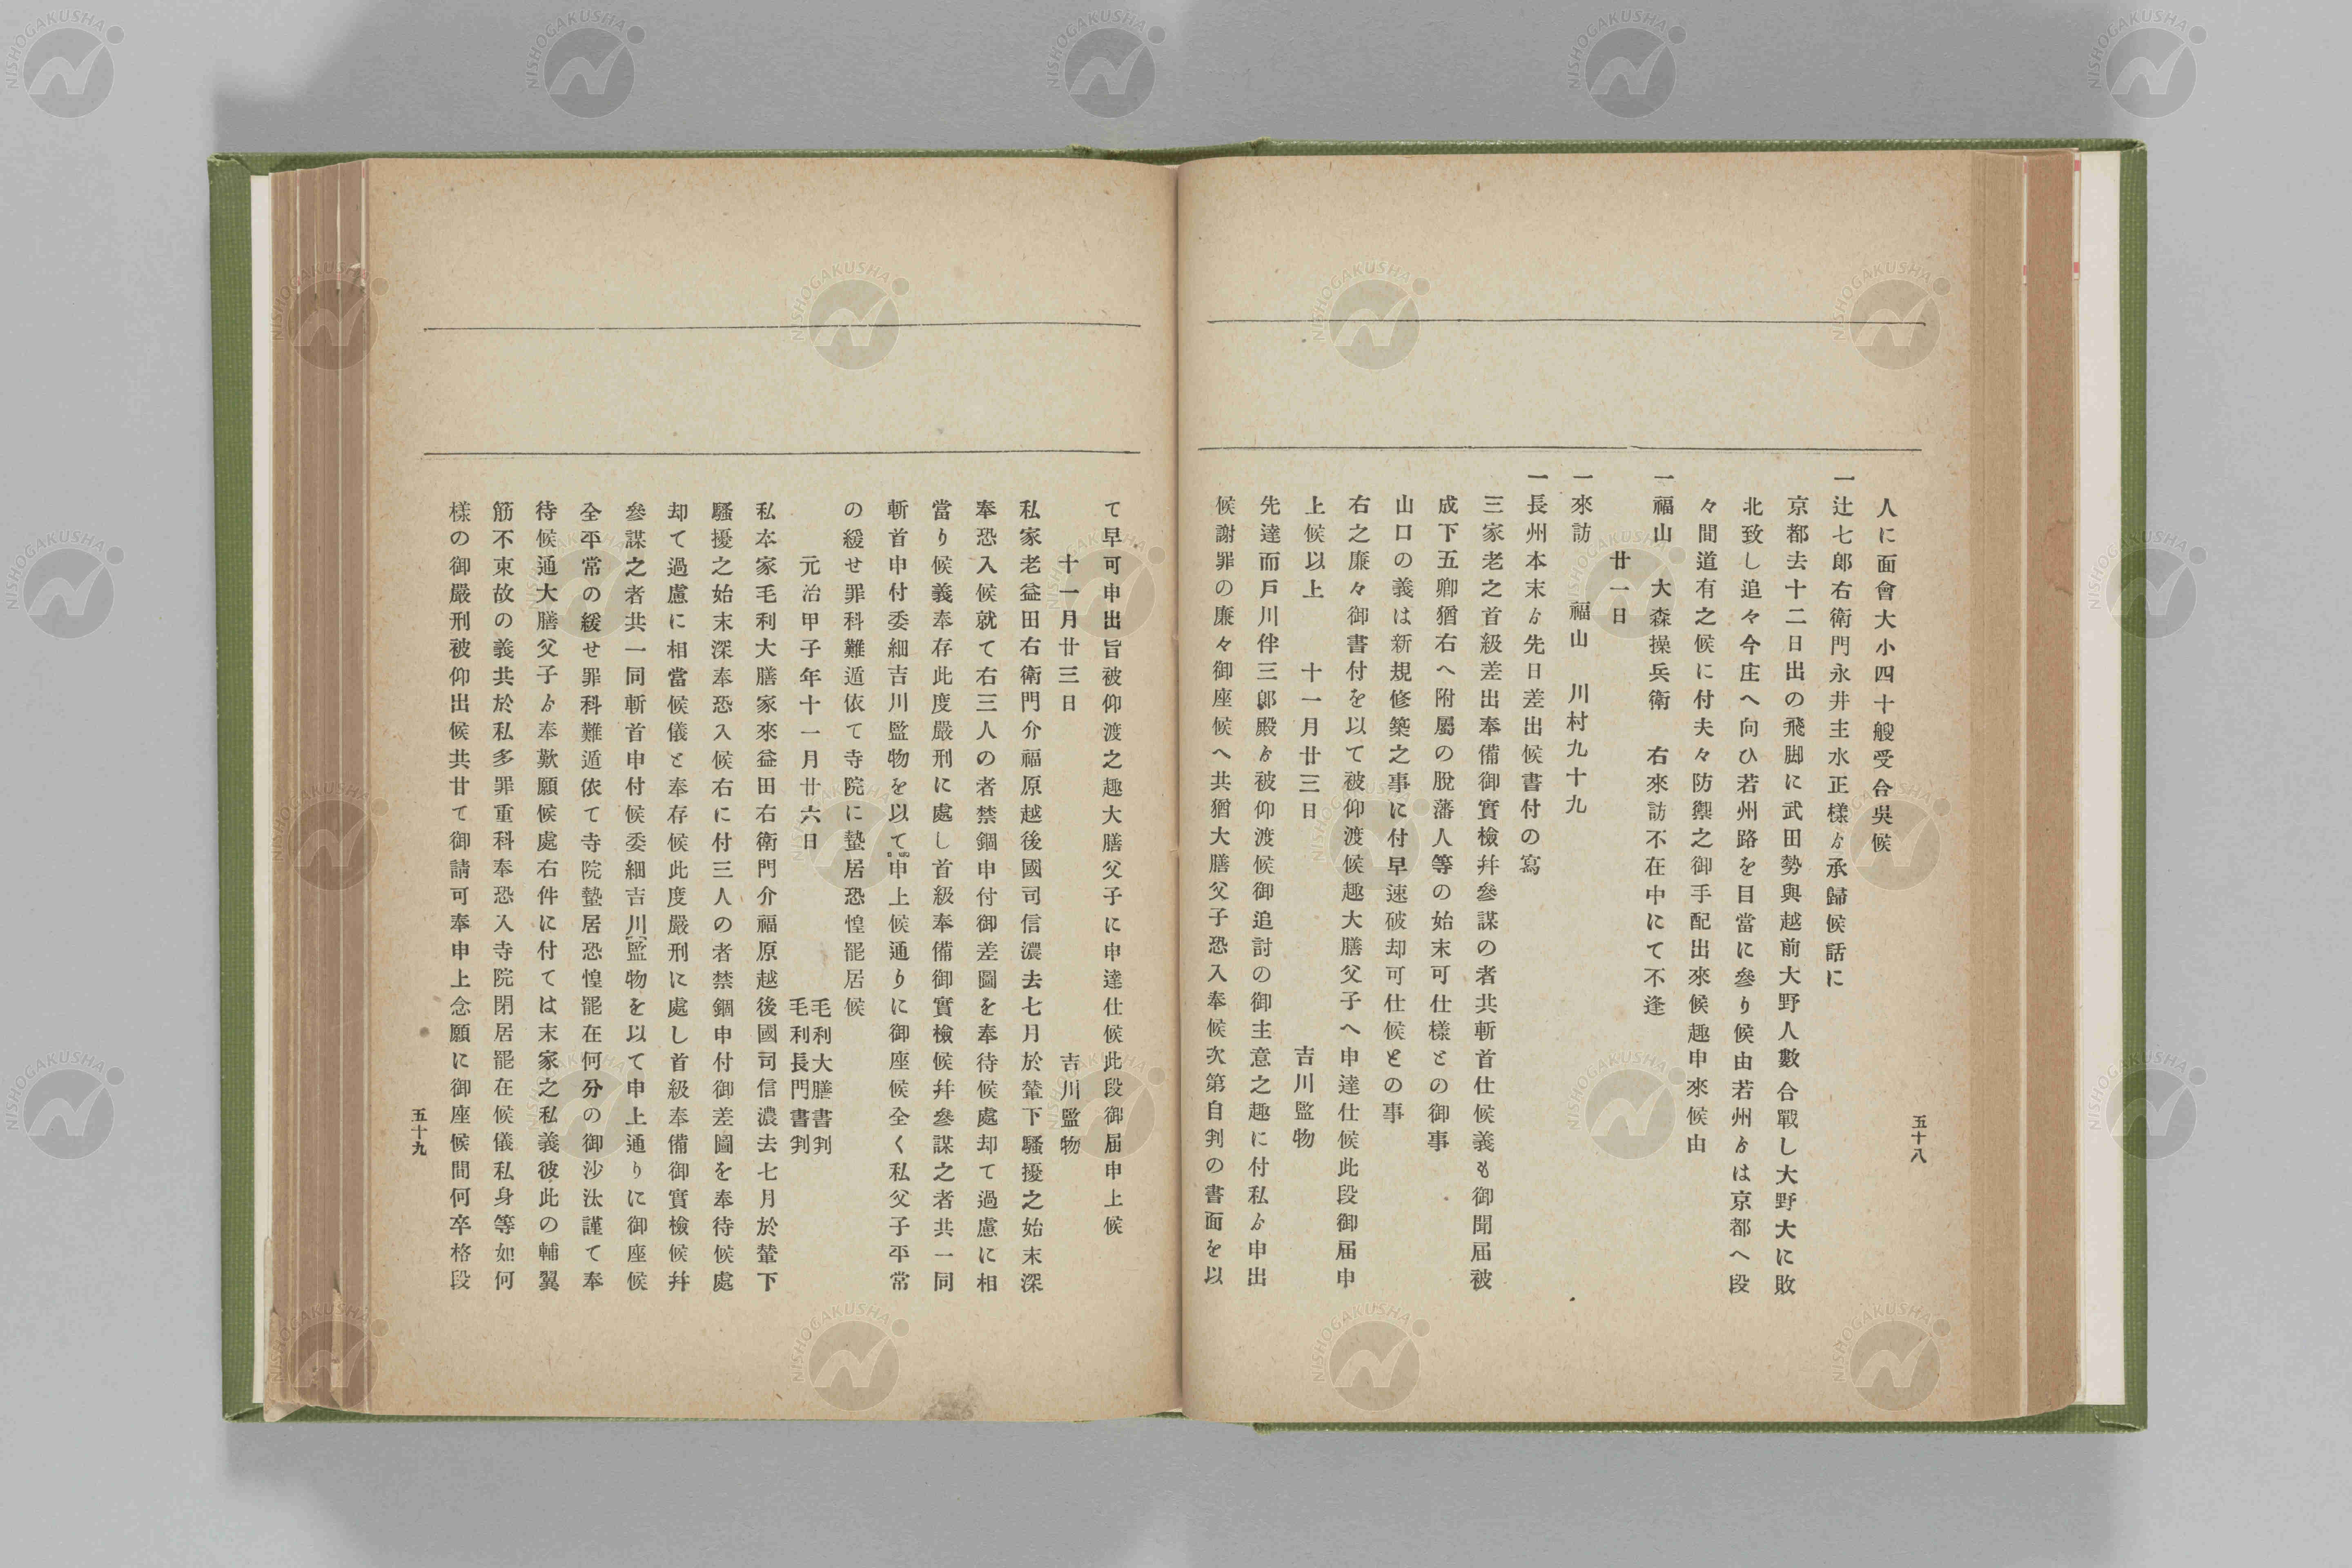 五十八
人に面會大小四十艘受合吳候
一辻七郎右衛門永井主水正樣ゟ承歸候話に
京都去十二日出の飛脚に武田勢與越前大野人數合戰し大野大に敗
北致し追々今庄へ向ひ若州路を目當に參り候由若州ゟは京都へ段
々間道有之候に付夫々防禦之御手配出來候趣申來候由
一福山　大森操兵衛　右來訪不在中にて不逢
廿一日
一來訪　福山　川村九十九
一長州本末ゟ先日差出候書付の寫
三家老之首級差出奉備御實檢幷參謀の者共斬首仕候義も御聞届被
成下五卿猶右へ附屬の脫藩人等の始末可仕樣との御事
山口の義は新規修築之事に付早速破却可仕候との事
右之廉々御書付を以て被仰渡候趣大膳父子へ申達仕候此段御届申
上候以上　十一月廿三日　吉川監物
先達而戶川伴三郎殿ゟ被仰渡候御追討の御主意之趣に付私ゟ申出
候謝罪の廉々御座候へ共猶大膳父子恐入奉候次第自判の書面を以
て早可申出旨被仰渡之趣大膳父子に申達仕候此段御届申上候
十一月廿三日　吉川監物
私家老益田右衛門介福原越後國司信濃去七月於輦下騷擾之始末深
奉恐入候就て右三人の者禁錮申付御差圖を奉待候處却て過慮に相
當り候義奉存此度嚴刑に處し首級奉備御實檢候幷參謀之者共一同
斬首申付委細吉川監物を以て申上候通りに御座候全く私父子平常
の緩せ罪科難遁依て寺院に蟄居恐惶罷居候
元治甲子年十一月廿六日　毛利大膳書判
毛利長門書判
私本家毛利大膳家來益田右衛門介福原越後國司信濃去七月於輦下
騷擾之始末深奉恐入候右に付三人の者禁錮申付御差圖を奉待候處
却て過慮に相當候儀と奉存候此度嚴刑に處し首級奉備御實檢候幷
參謀之者共一同斬首申付候委細吉川監物を以て申上通りに御座候
全平常の緩せ罪科難遁依て寺院蟄居恐惶罷在何分の御沙汰謹て奉
待候通大膳父子ゟ奉歎願候處右件に付ては末家之私義彼此の輔翼
筋不束故の義共於私多罪重科奉恐入寺院閉居罷在候儀私身等如何
樣の御嚴刑被仰出候共甘て御請可奉申上念願に御座候間何卒格段
五十九
NISHOGAKUSHA